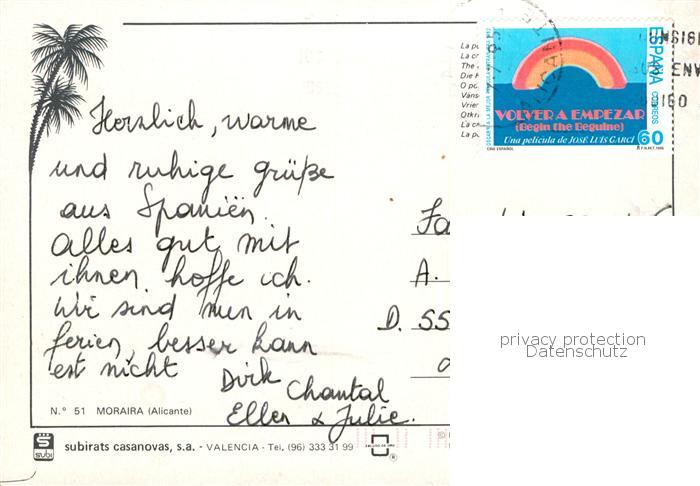 Herzlich, warme
und ruhige grüße
aus Spaniën.
alles gut mit
ihnen, hoffe ich.
Wir sind nun in
ferien, besser kann
est nicht
Dirk
Chantal
Ellen & Julie.
N.° 51 MORAIRA (Alicante)
subi
subirats casanovas, s.a. - VALENCIA - Tel. (96) 333 31 99
La p
La c
The
Die
O p
Väns
Vrie
Otkr
La c
La p
VOLVER A EMPEZAR
(Begin the Beguine)
Una película de JOSÉ LUÍS GARCÍ
CINE ESPAÑOL
ESPAÑA
CORREOS
60
Fa
A.
D. 55
privacy protection
Datenschutz